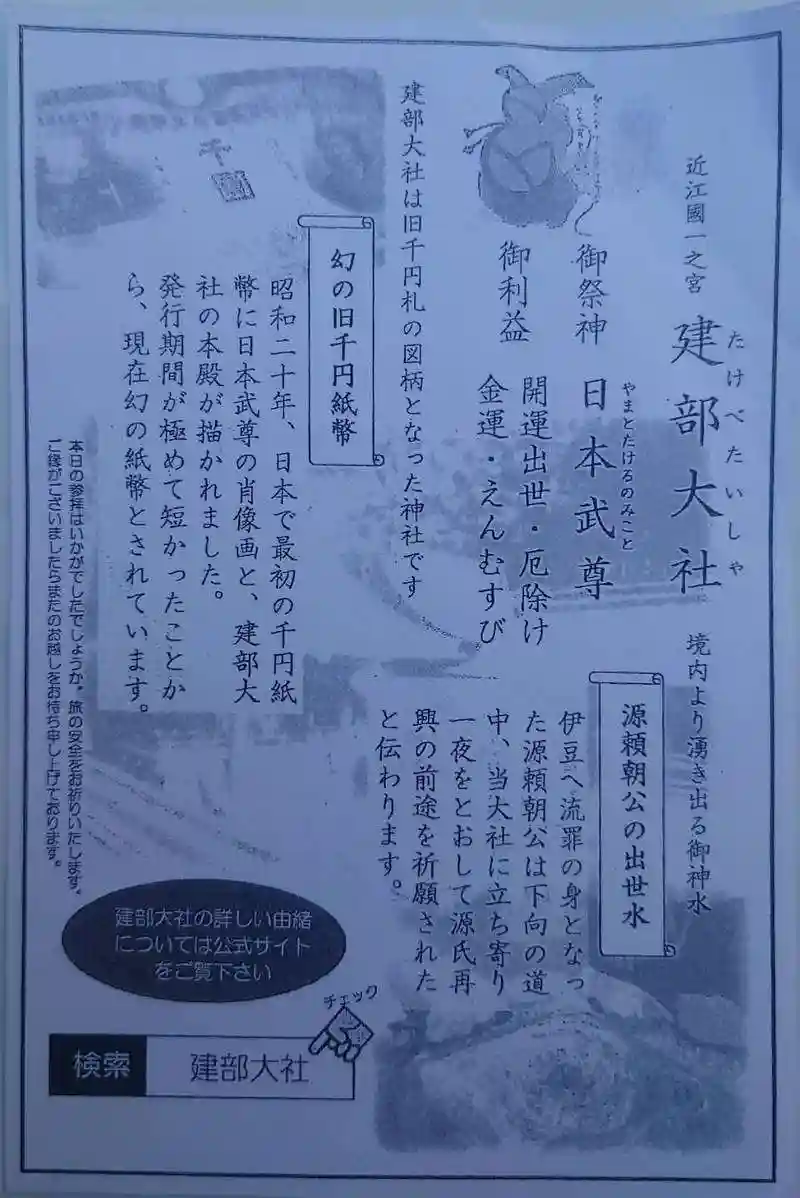 近江國一之宮 建部大社
たけべたいしゃ
御祭神 日本武尊
やまとたけるのみこと
御利益 開運出世・厄除け
金運・えんむすび
建部大社は旧千円札の図柄となった神社です
幻の旧千円紙幣
昭和二十年、日本で最初の千円紙
幣に日本武尊の肖像画と、建部大
社の本殿が描かれました。
発行期間が極めて短かったことか
ら、現在幻の紙幣とされています。
境内より湧き出る御神水
源頼朝公の出世水
伊豆へ流罪の身となっ
た源頼朝公は下向の道
中、当大社に立ち寄り
一夜をとおして源氏再
興の前途を祈願された
と伝わります。
本日の参拝はいかがでしたでしょうか。旅の安全をお祈りいたします。
ご縁がございましたらまたのお越しをお待ち申し上げております。
建部大社の詳しい由緒
については公式サイト
をご覧下さい
チェック
検索 建部大社